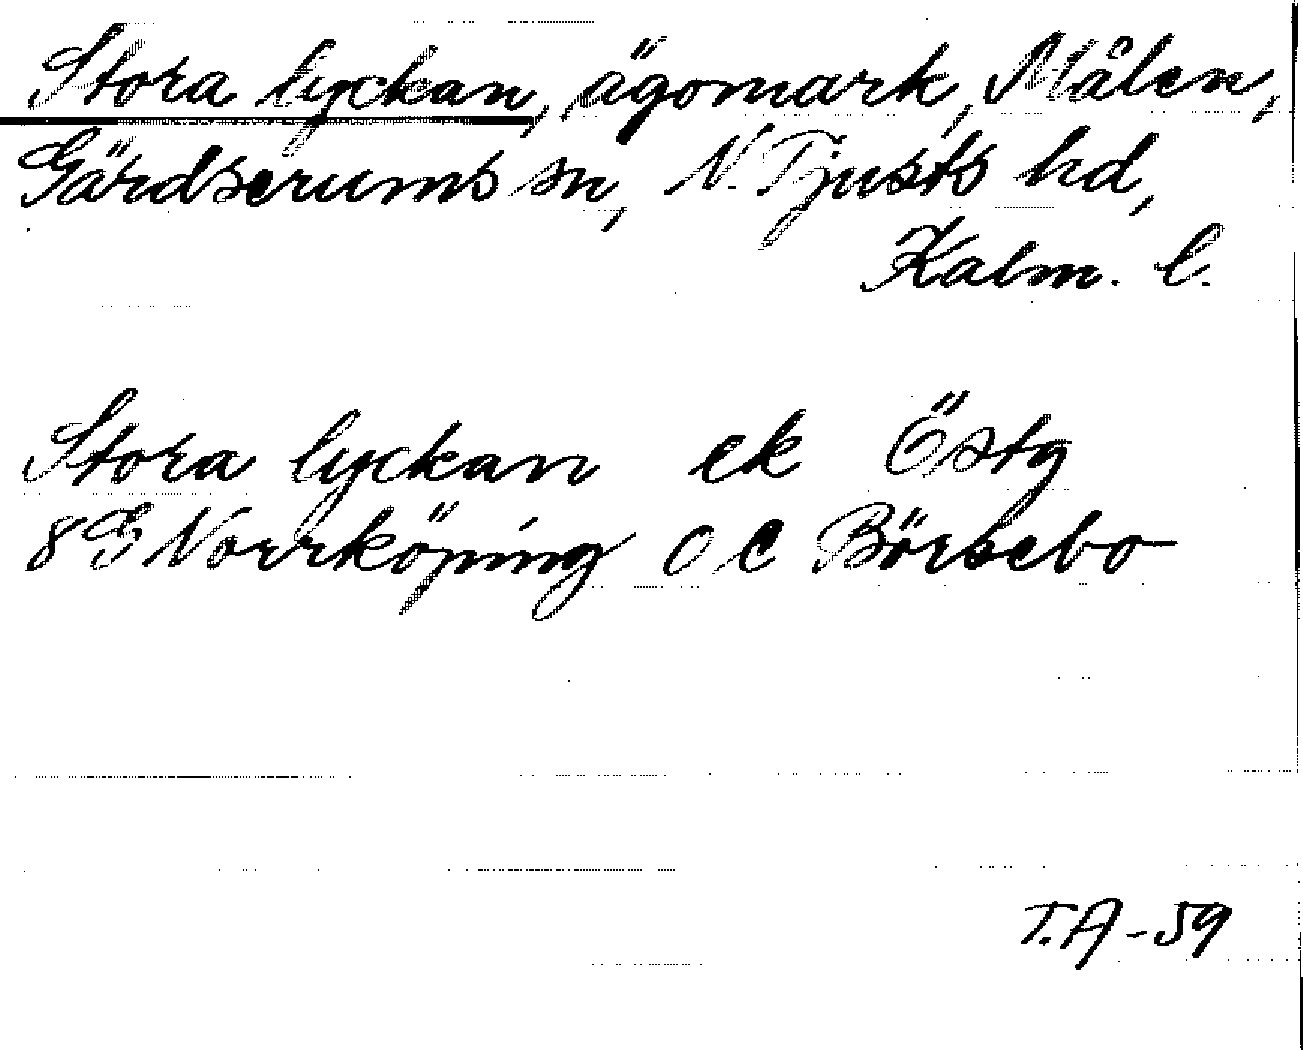 Stora lyckan, ägomark, Målen,
Gärdserums sn, N. Tjusts hd,
Kalm. l.
Stora lyckan ek Östg
8 G Norrköping O C Börsebo
T.A-59